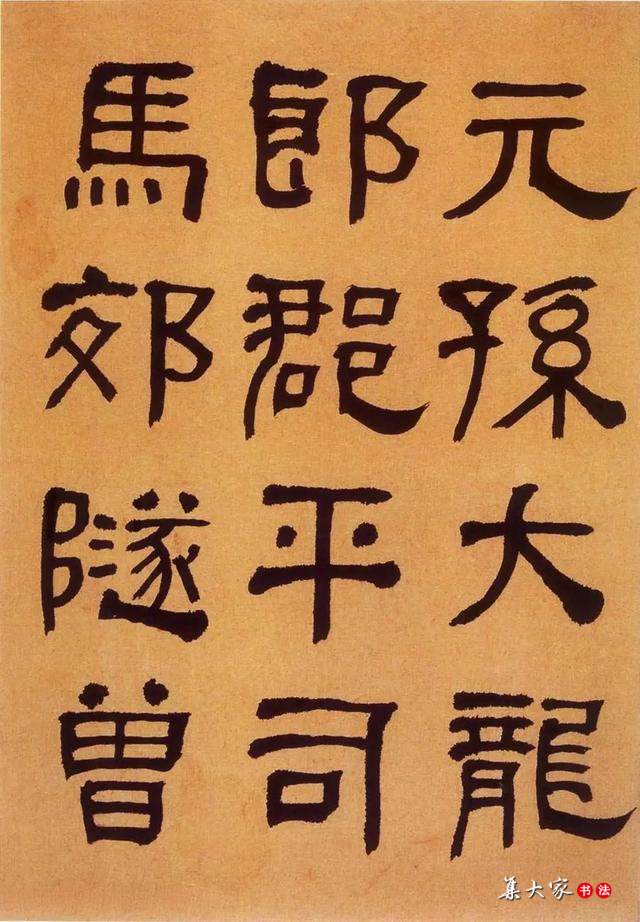 元孫大龍
郎郡平司
馬郊隧曾
集大家书法